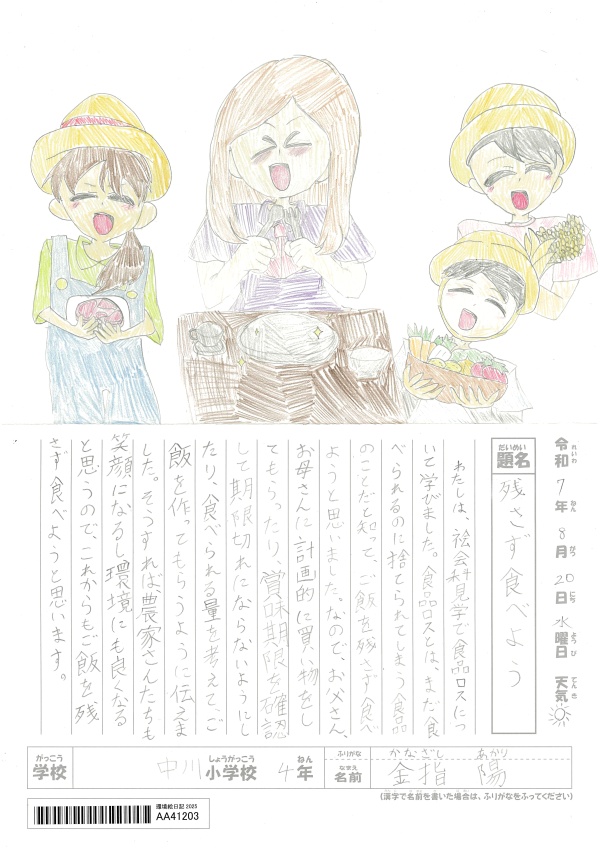 令和 7年 8月 20日 水曜日 天気
れいわ ねん がつ にち ようび てんき
だいめい
題名 残さず食べよう
わたしは、社会科見学で食品ロスにつ
いて学びました。食品ロスとは、まだ食
べられるのに捨てられてしまう食品
のことだと知って、ご飯を残さず食べ
ようと思いました。なので、お父さん、
お母さんに計画的に買い物をし
てもらったり、賞味期限を確認
して期限切れにならないようにし
たり、食べられる量を考えて、ご
飯を作ってもらうように伝えま
した。そうすれば農家さんたちも
笑顔になるし環境にも良くなる
と思うので、これからもご飯を残
さず食べようと思います。
がっこう しょうがっこう ねん ふりがな かなざし あかり
学校 中川 小学校 4年 なまえ 名前 金指 陽
(漢字で名前を書いた場合は、ふりがなをふってください)
環境絵日記 2025
AA41203